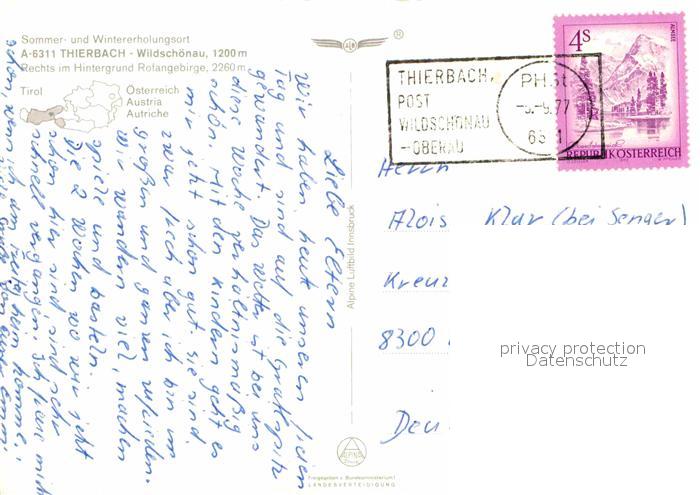 Sommer- und Wintererholungsort
A-6311 THIERBACH - Wildschönau, 1200 m
Rechts im Hintergrund Rofangebirge, 2260 m
Tirol
Österreich
Austria
Autriche
Alpine Luftbild Innsbruck
ALPINE
Freigegeben v. Bundesministerium f.
LANDESVERTEIDIGUNG
®
4S
ALMSEE
REPUBLIK ÖSTERREICH
THIERBACH,
POST
WILDSCHÖNAU
-OBERAU
PH.St
77
Herrn
Alois Klar (bei Senaer)
Kreuz
8300
Deu
privacy protection
Datenschutz
Liebe Eltern
Wir haben heut unseren freien
Tag und sind auf die Gratlspitz
gewandert. Das Wetter ist bei uns
diese Woche verhältnismäßig
schön. Mit den Kindern geht es
mir jetzt schon gut, sie sind
zwar frech aber ich bin im
großen und ganzen zufrieden.
Wir wandern viel, machen
Spiele und basteln
Die 2 Wochen wo wir jetzt
schon hier sind sind sehr
schnell vergangen. Ich freue mich
schon, wenn ich am heim komme.